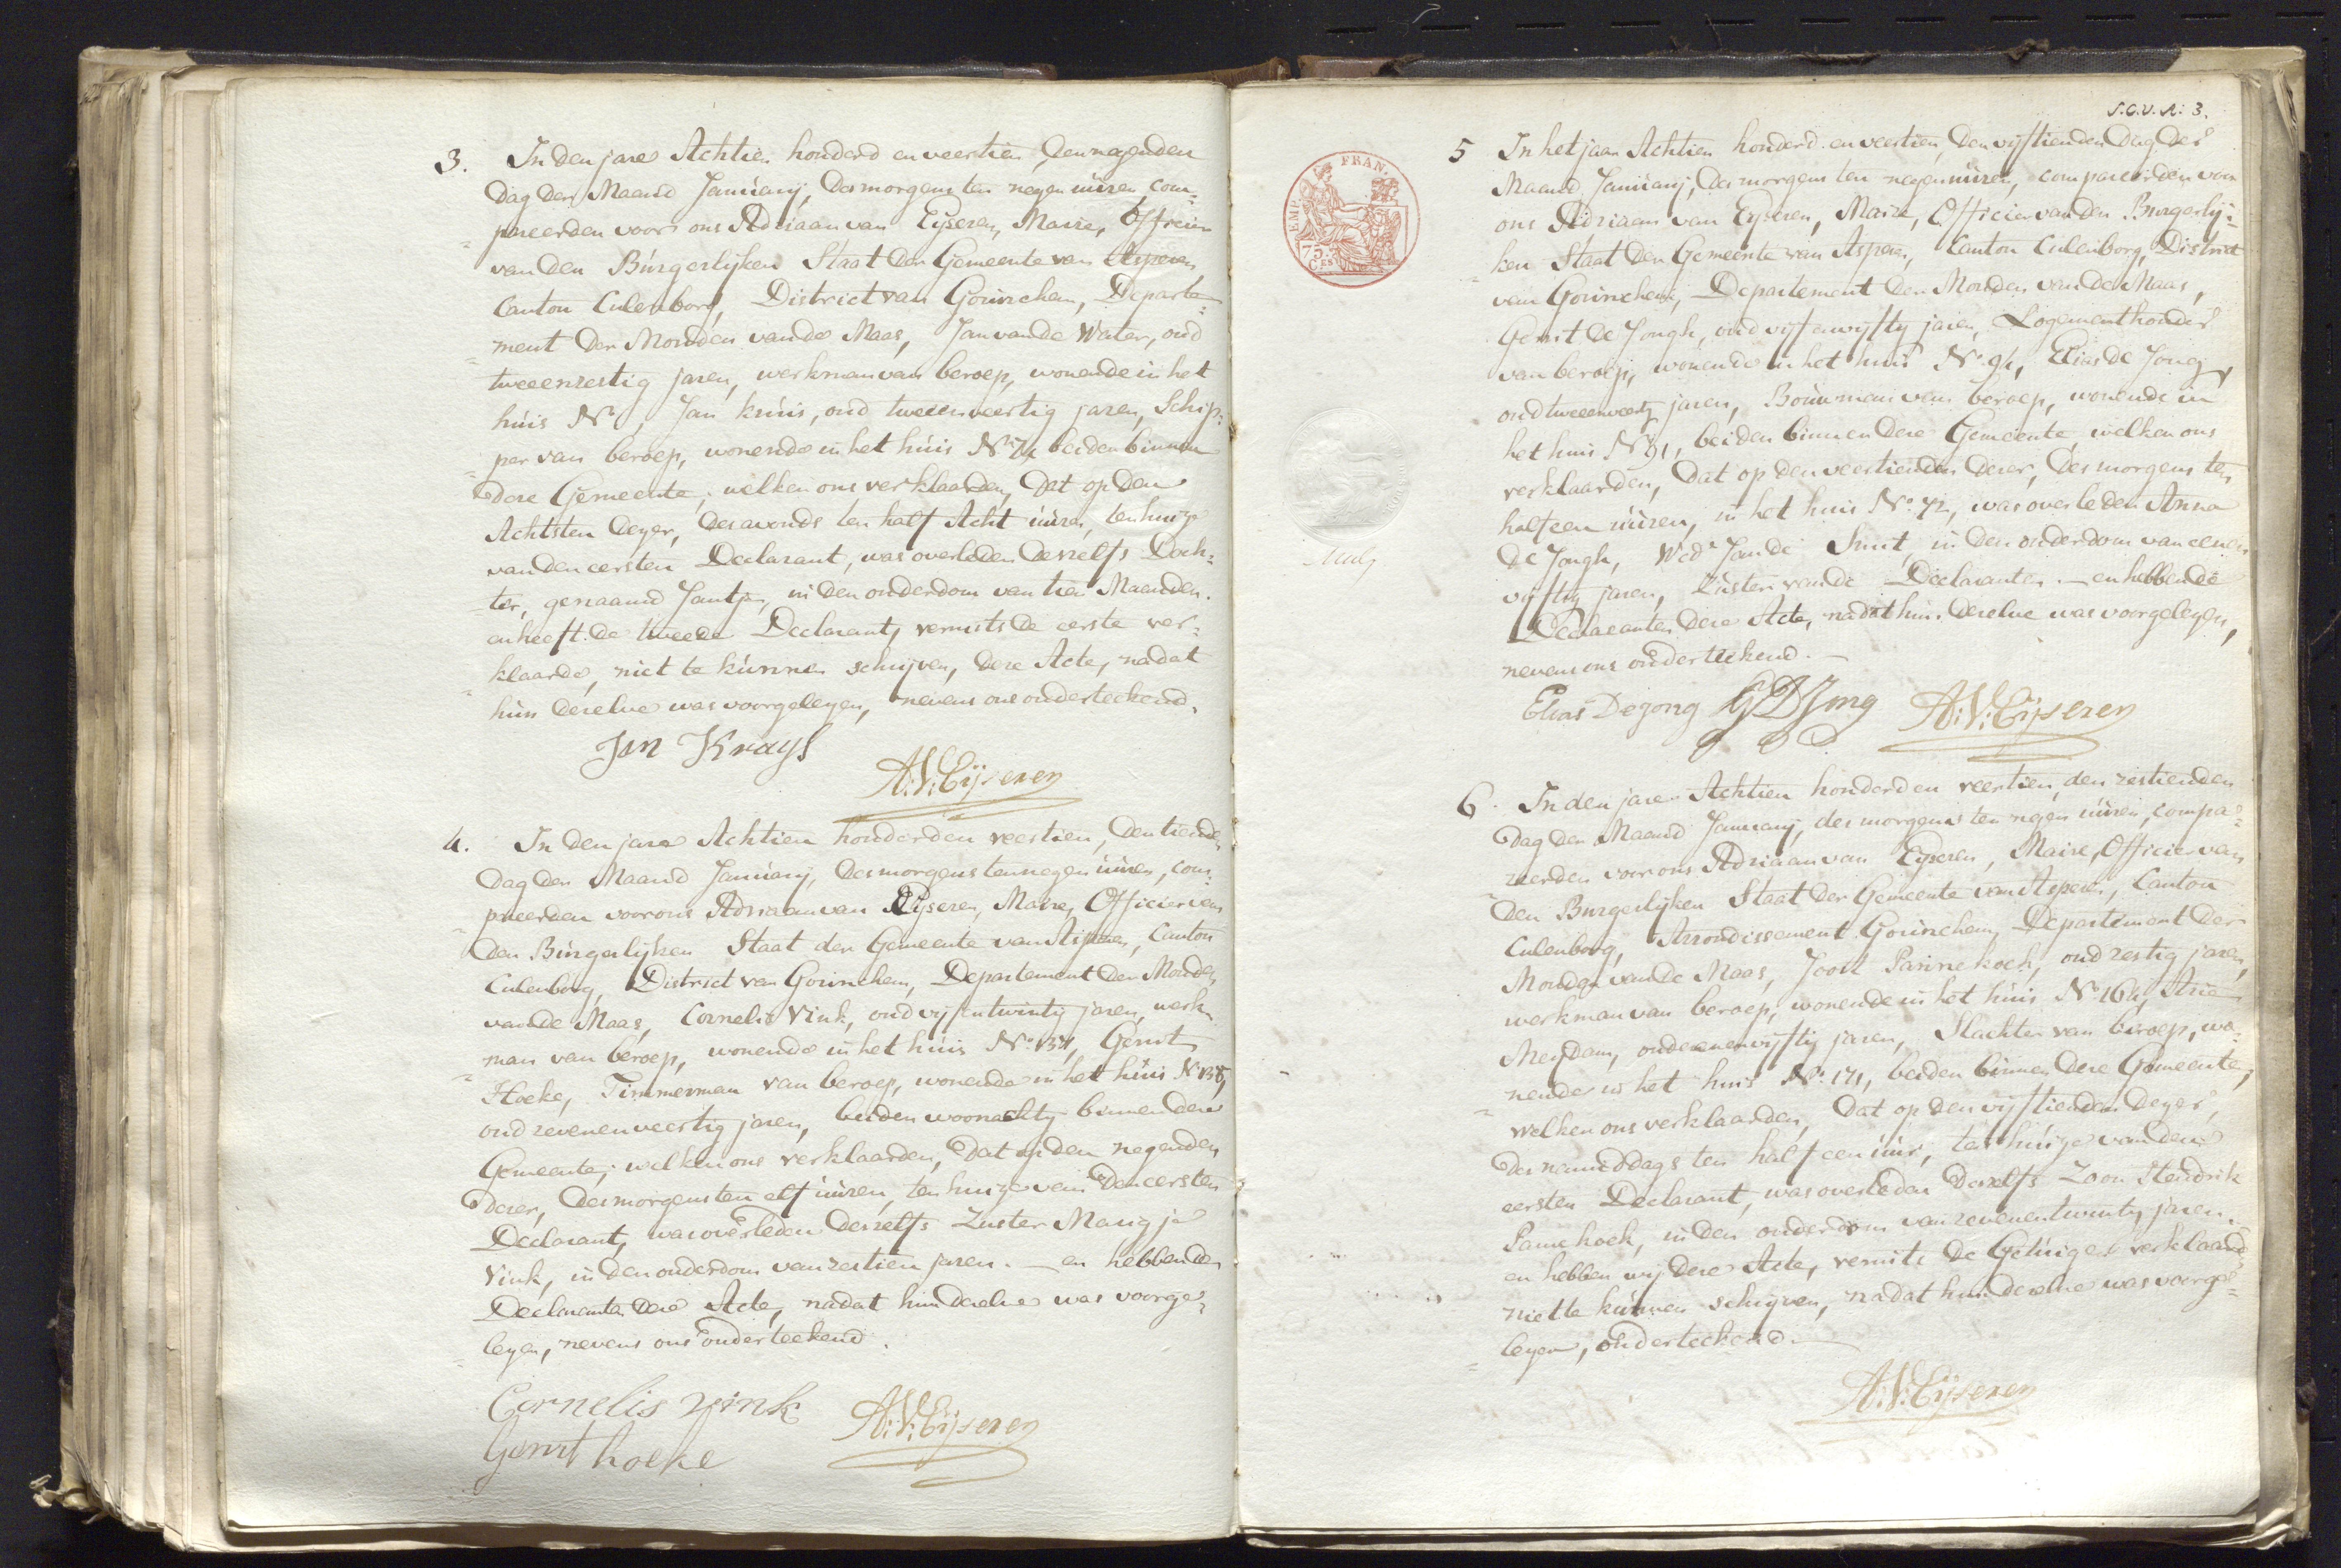 3. In den jare Achtien honderd en veertien, den negenden
Dag der Maand Januarij, des morgens ten negen uuren, com=
pareerden voor ons Adriaan van Eyseren, Maire, Officier
van den Burgerlyken Staat der Gemeente van Asperen,
Canton Culenborg, District van Gorinchem, Departe=
ment der Monden van de Maas, Jan van de Water, oud
tweeenzestig jaren, werkman van beroep, wonende in het
huis No , Jan Kruis, oud tweeenveertig jaren, Schip=
per van beroep, wonende in het huis No beiden binnen
deze Gemeente; welken ons verklaarden, dat op den
Achtsten dezer, des avonds ten half Acht uuren, ten huize
van den eersten Declarant, was overleden deszelfs Doch=
ter, genaamd Jantje, in den ouderdom van tien Maanden.
en heeft de tweede Declarant, vermits de eerste ver=
klaarde, niet te kunnen schrijven, deze Acte, nadat
hun dezelve was voorgelezen, nevens ons onderteekend.
Jan Kruys
A:V:Eijseren
4. In den jare Achtien honderd en veertien, den tienden
Dag der Maand Januarij, des morgens ten negen uuren, com=
pareerden voor ons Adriaan van Eyseren, Maire, Officier van
den Burgerlyken Staat der Gemeente van Asperen, Canton
Culenborg, District van Gorinchem, Departement der Monden
van de Maas, Cornelis Vink, oud vyfentwintig jaren, werk=
man van beroep, wonende in het huis No 131, Gerrit
Hoeke, Timmerman van beroep, wonende in het huis No 138,
oud zevenenveertig jaren, beiden woonachtig binnen deze
Gemeente; welken ons verklaarden, dat op den negenden
dezer, des morgens ten elf uuren, ten huize van den eersten
Declarant, was overleden deszelfs Zuster Marigje
Vink, in den ouderdom van zestien jaren. — en hebben de
Declaranten deze Acte, nadat hun dezelve was voorge=
lezen, nevens ons onderteekend.
Cornelis vink
A:V:Eijseren
Gerrit hoeke
S.C.V. A: 3.
EMP. FRAN.
75
CES
5 In het jaar Achtien honderd en veertien, den vyftienden Dag der
Maand Januarij, des morgens ten negen uuren, compareerden voor
ons Adriaan van Eyseren, Maire, Officier van den Burgerlij=
ken Staat der Gemeente van Asperen, Canton Culenborg, District
van Gorinchem, Departement der Monden van de Maas,
Gerrit de Jongh, oud vyfenvyftig jaren, Logementhouder
van beroep, wonende in het huis No 94, Elias de Jong,
oud tweeenveertig jaren, Bouwman van beroep, wonende in
het huis No 91, beiden binnen deze Gemeente, welken ons
verklaarden, dat op den veertienden dezer, des morgens ten
half een uuren, in het huis No 72, was overleden Anna
de Jongh, Wede Jan de Smit, in den ouderdom van eenen
vyftig jaren, Zuster van de Declaranten. — en hebben de
Declaranten deze Acte, nadat hun dezelve was voorgelezen,
nevens ons onderteekend. —
Elias De jong G D Jong A:V:Eijseren
6. In den jare Achtien honderd en veertien, den zestienden
Dag der Maand Januarij, des morgens ten negen uuren, compa=
reerden voor ons Adriaan van Eyseren, Maire, Officier van
den Burgerlijken Staat der Gemeente van Asperen, Canton
Culenborg, Arrondissement Gorinchem, Departement der
Monden van de Maas, Joost Pannekoek, oud zestig jaren,
werkman van beroep, wonende in het huis No 164, Arie
Meydam, oud eenenvyftig jaren, Slachter van beroep, wo=
nende in het huis No 171, beiden binnen deze Gemeente,
welken ons verklaarden, dat op den vyftienden dezer,
des namiddags ten half een uur, ten huize van den
eersten Declarant, was overleden deszelfs Zoon Hendrik
Pannekoek, in den ouderdom van zevenentwintig jaren.
en hebben wij deze Acte, vermits de Getuigen verklaarden
niet te kunnen schrijven, nadat hun dezelve was voorge=
lezen, onderteekend. —
A:V:Eijseren